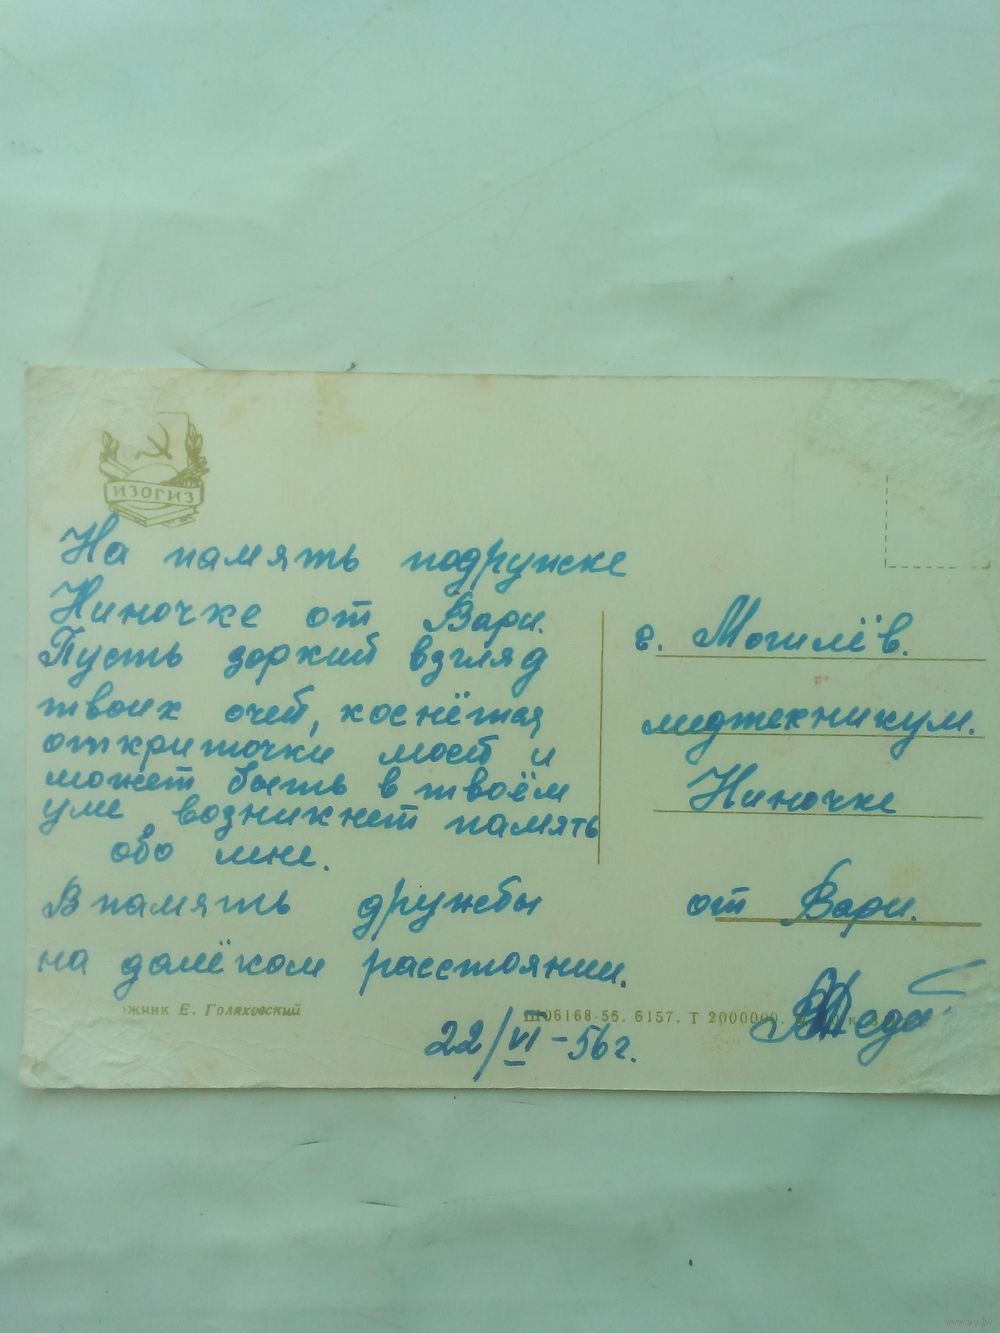 ИЗОГИЗ
На память подружке
Ниночке от Вари.
Пусть зоркий взгляд
твоих очей, коснётся
откриточки моей и
может быть в твоём
уме возникнет память
обо мне.
В память дружбы
на далёком расстоянии.
22/VI-56г.
г. Могилёв.
медтехникум.
Ниночке
от Вари.
жник Е. Голяховский
06168-56. 6157. Т 2000000.
www.ay.by